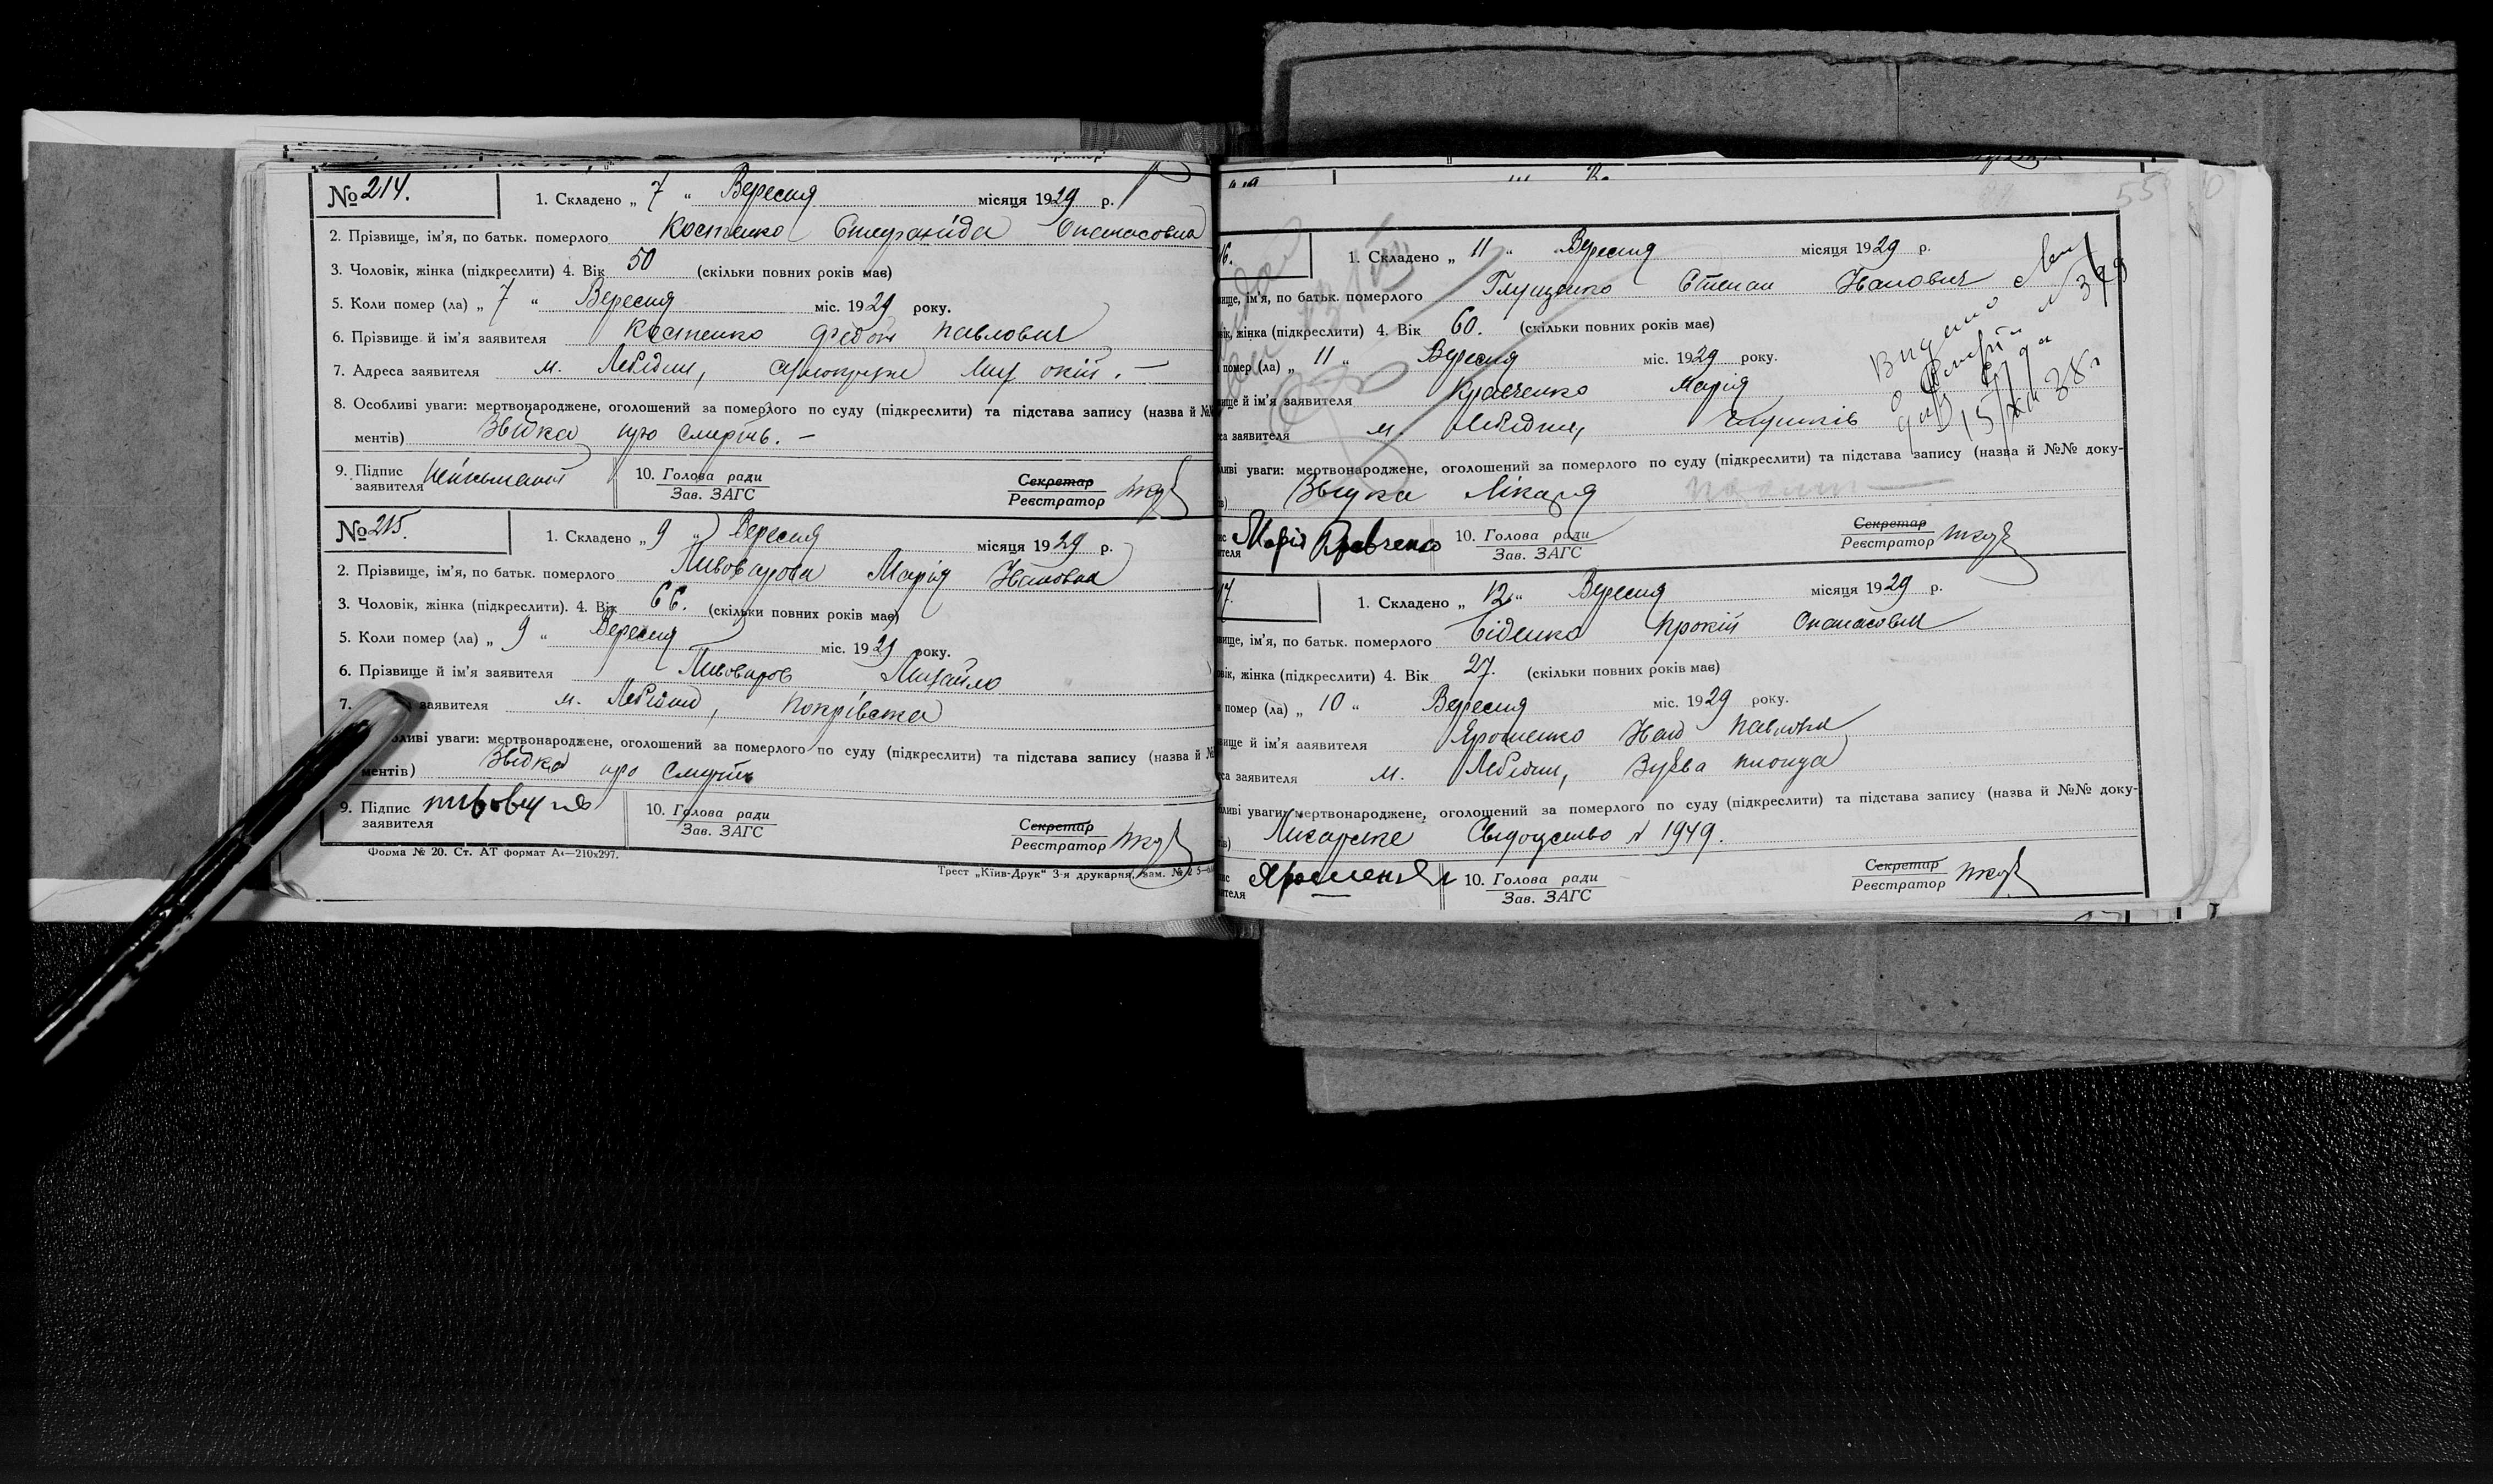 № 214.
1. Складено „ 7 “ Вересня місяця 1929 р.
2. Прізвище, ім'я, по батьк. померлого Костенко Степаніда Опанасовна
3. Чоловік, жінка (підкреслити) 4. Вік 50 (скільки повних років має)
5. Коли помер (ла) „ 7 “ Вересня міс. 1929 року.
6. Прізвище й ім'я заявителя Костенко Федот Павлович
7. Адреса заявителя м. Лебідин,
8. Особливі уваги: мертвонароджене, оголошений за померлого по суду (підкреслити) та підстава запису (назва й №№
ментів) Звідка про смерть. —
9. Підпис заявителя Неписьменний
10. Голова ради
Зав. ЗАГС
Секретар
Реєстратор
№ 215.
1. Складено „ 9 “ Вересня місяця 1929 р.
2. Прізвище, ім'я, по батьк. померлого Пивоварова Марія Івановна
3. Чоловік, жінка (підкреслити). 4. Вік 66. (скільки повних років має)
5. Коли помер (ла) „ 9 “ Вересня міс. 1929 року.
6. Прізвище й ім'я заявителя Пивоваров Михайло
7. заявителя м. Лебідин, Покрівська
ливі уваги: мертвонароджене, оголошений за померлого по суду (підкреслити) та підстава запису (назва й №
ментів) Звідка про смерть
9. Підпис заявителя
10. Голова ради
Зав. ЗАГС
Секретар
Реєстратор
Форма № 20. Ст. АТ формат А4—210х297.
Трест „Київ-Друк“ 3-я друкарня, зам. №
55
16.
1. Складено „ 11 “ Вересня місяця 1929 р.
вище, ім'я, по батьк. померлого Глущенко Степан Іванович
вік, жінка (підкреслити) 4. Вік 60. (скільки повних років має)
помер (ла) „ 11 “ Вересня міс. 1929 року.
вище й ім'я заявителя Кравченко Марія
са заявителя м. Лебідин,
ливі уваги: мертвонароджене, оголошений за померлого по суду (підкреслити) та підстава запису (назва й №№ доку-
Звідка Лікаря
Марія Кравченко
10. Голова ради
Зав. ЗАГС
Секретар
Реєстратор
17.
1. Складено „ 12 “ Вересня місяця 1929 р.
вище, ім'я, по батьк. померлого Біденко Прокіп Опанасович
вік, жінка (підкреслити) 4. Вік 27. (скільки повних років має)
помер (ла) „ 10 “ Вересня міс. 1929 року.
вище й ім'я заявителя Ярошенко Павлович
са заявителя м. Лебідин, площа
ливі уваги: мертвонароджене, оголошений за померлого по суду (підкреслити) та підстава запису (назва й №№ доку-
Лікарське Свідоцтво № 1949.
10. Голова ради
Зав. ЗАГС
Секретар
Реєстратор